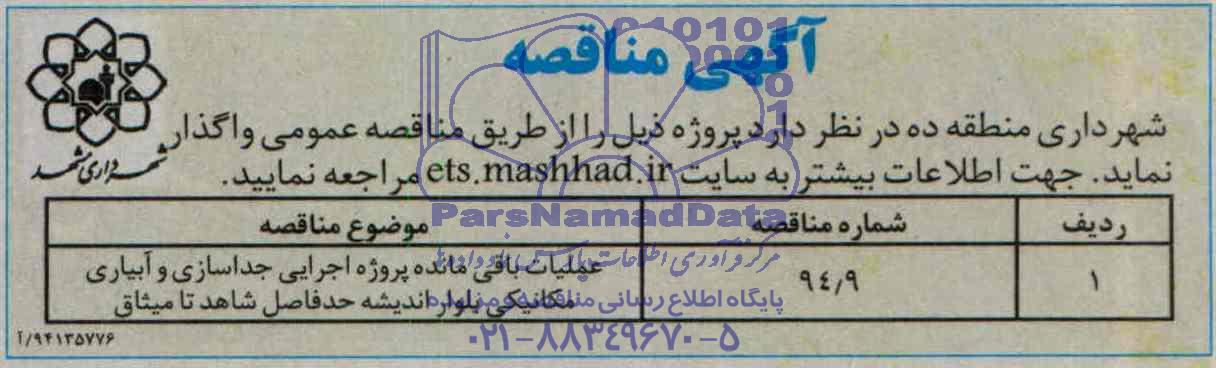 آگهی مناقصه
شهرداری مشهد
شهرداری منطقه ده در نظر دارد پروژه ذیل را از طریق مناقصه عمومی واگذار
نماید. جهت اطلاعات بیشتر به سایت ets.mashhad.ir مراجعه نمایید.
ردیف شماره مناقصه موضوع مناقصه
۱ ۹٤٫۹ عملیات باقی مانده پروژه اجرایی جداسازی و آبیاری
مکانیکی بلوار اندیشه حدفاصل شاهد تا میثاق
۹۴۱۳۵۷۷۶/آ
ParsNamadData
پایگاه اطلاع رسانی مناقصه و مزایده
۰۲۱-۸۸۳۴۹۶۷۰-۵